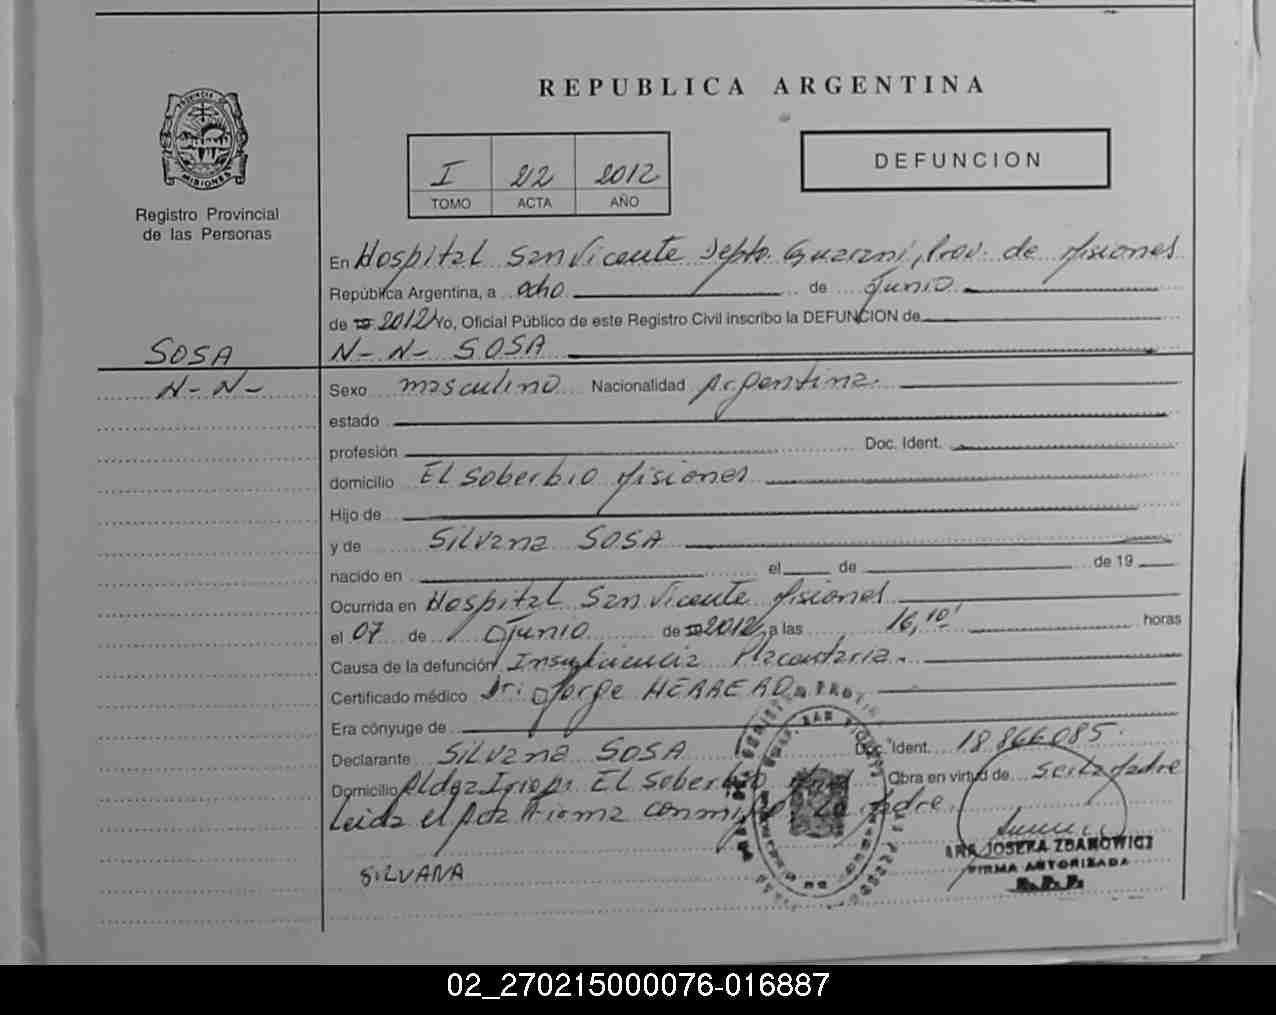 REPUBLICA ARGENTINA
PROVINCIA DE
MISIONES
Registro Provincial
de las Personas
I 22 2012
TOMO ACTA AÑO
DEFUNCION
En Hospital San Vicente Depto. Guaraní, Prov. de Misiones
República Argentina, a ocho de Junio
de 19 2012 Yo, Oficial Público de este Registro Civil inscribo la DEFUNCION de
SOSA
N-N-
N-N- SOSA
Sexo masculino Nacionalidad Argentina.
estado
profesión Doc. Ident.
domicilio El Soberbio Misiones
Hijo de
y de Silvana SOSA
nacido en el de de 19
Ocurrida en Hospital San Vicente Misiones
el 07 de Junio de 19 2012 a las 16,10' horas
Causa de la defunción Insuficiencia Placentaria.
Certificado médico Dr: Jorge HERRERO
Era cónyuge de
Declarante Silvana SOSA Doc. Ident. 18.866.085.
Domicilio Aldea El Soberbio Obra en virtud de ser la Madre
Leida el Acta firma conmigo, La Madre.
SILVANA
ANA JOSEFA ZDANOWICZ
FIRMA AUTORIZADA
R.P.P.
02_270215000076-016887